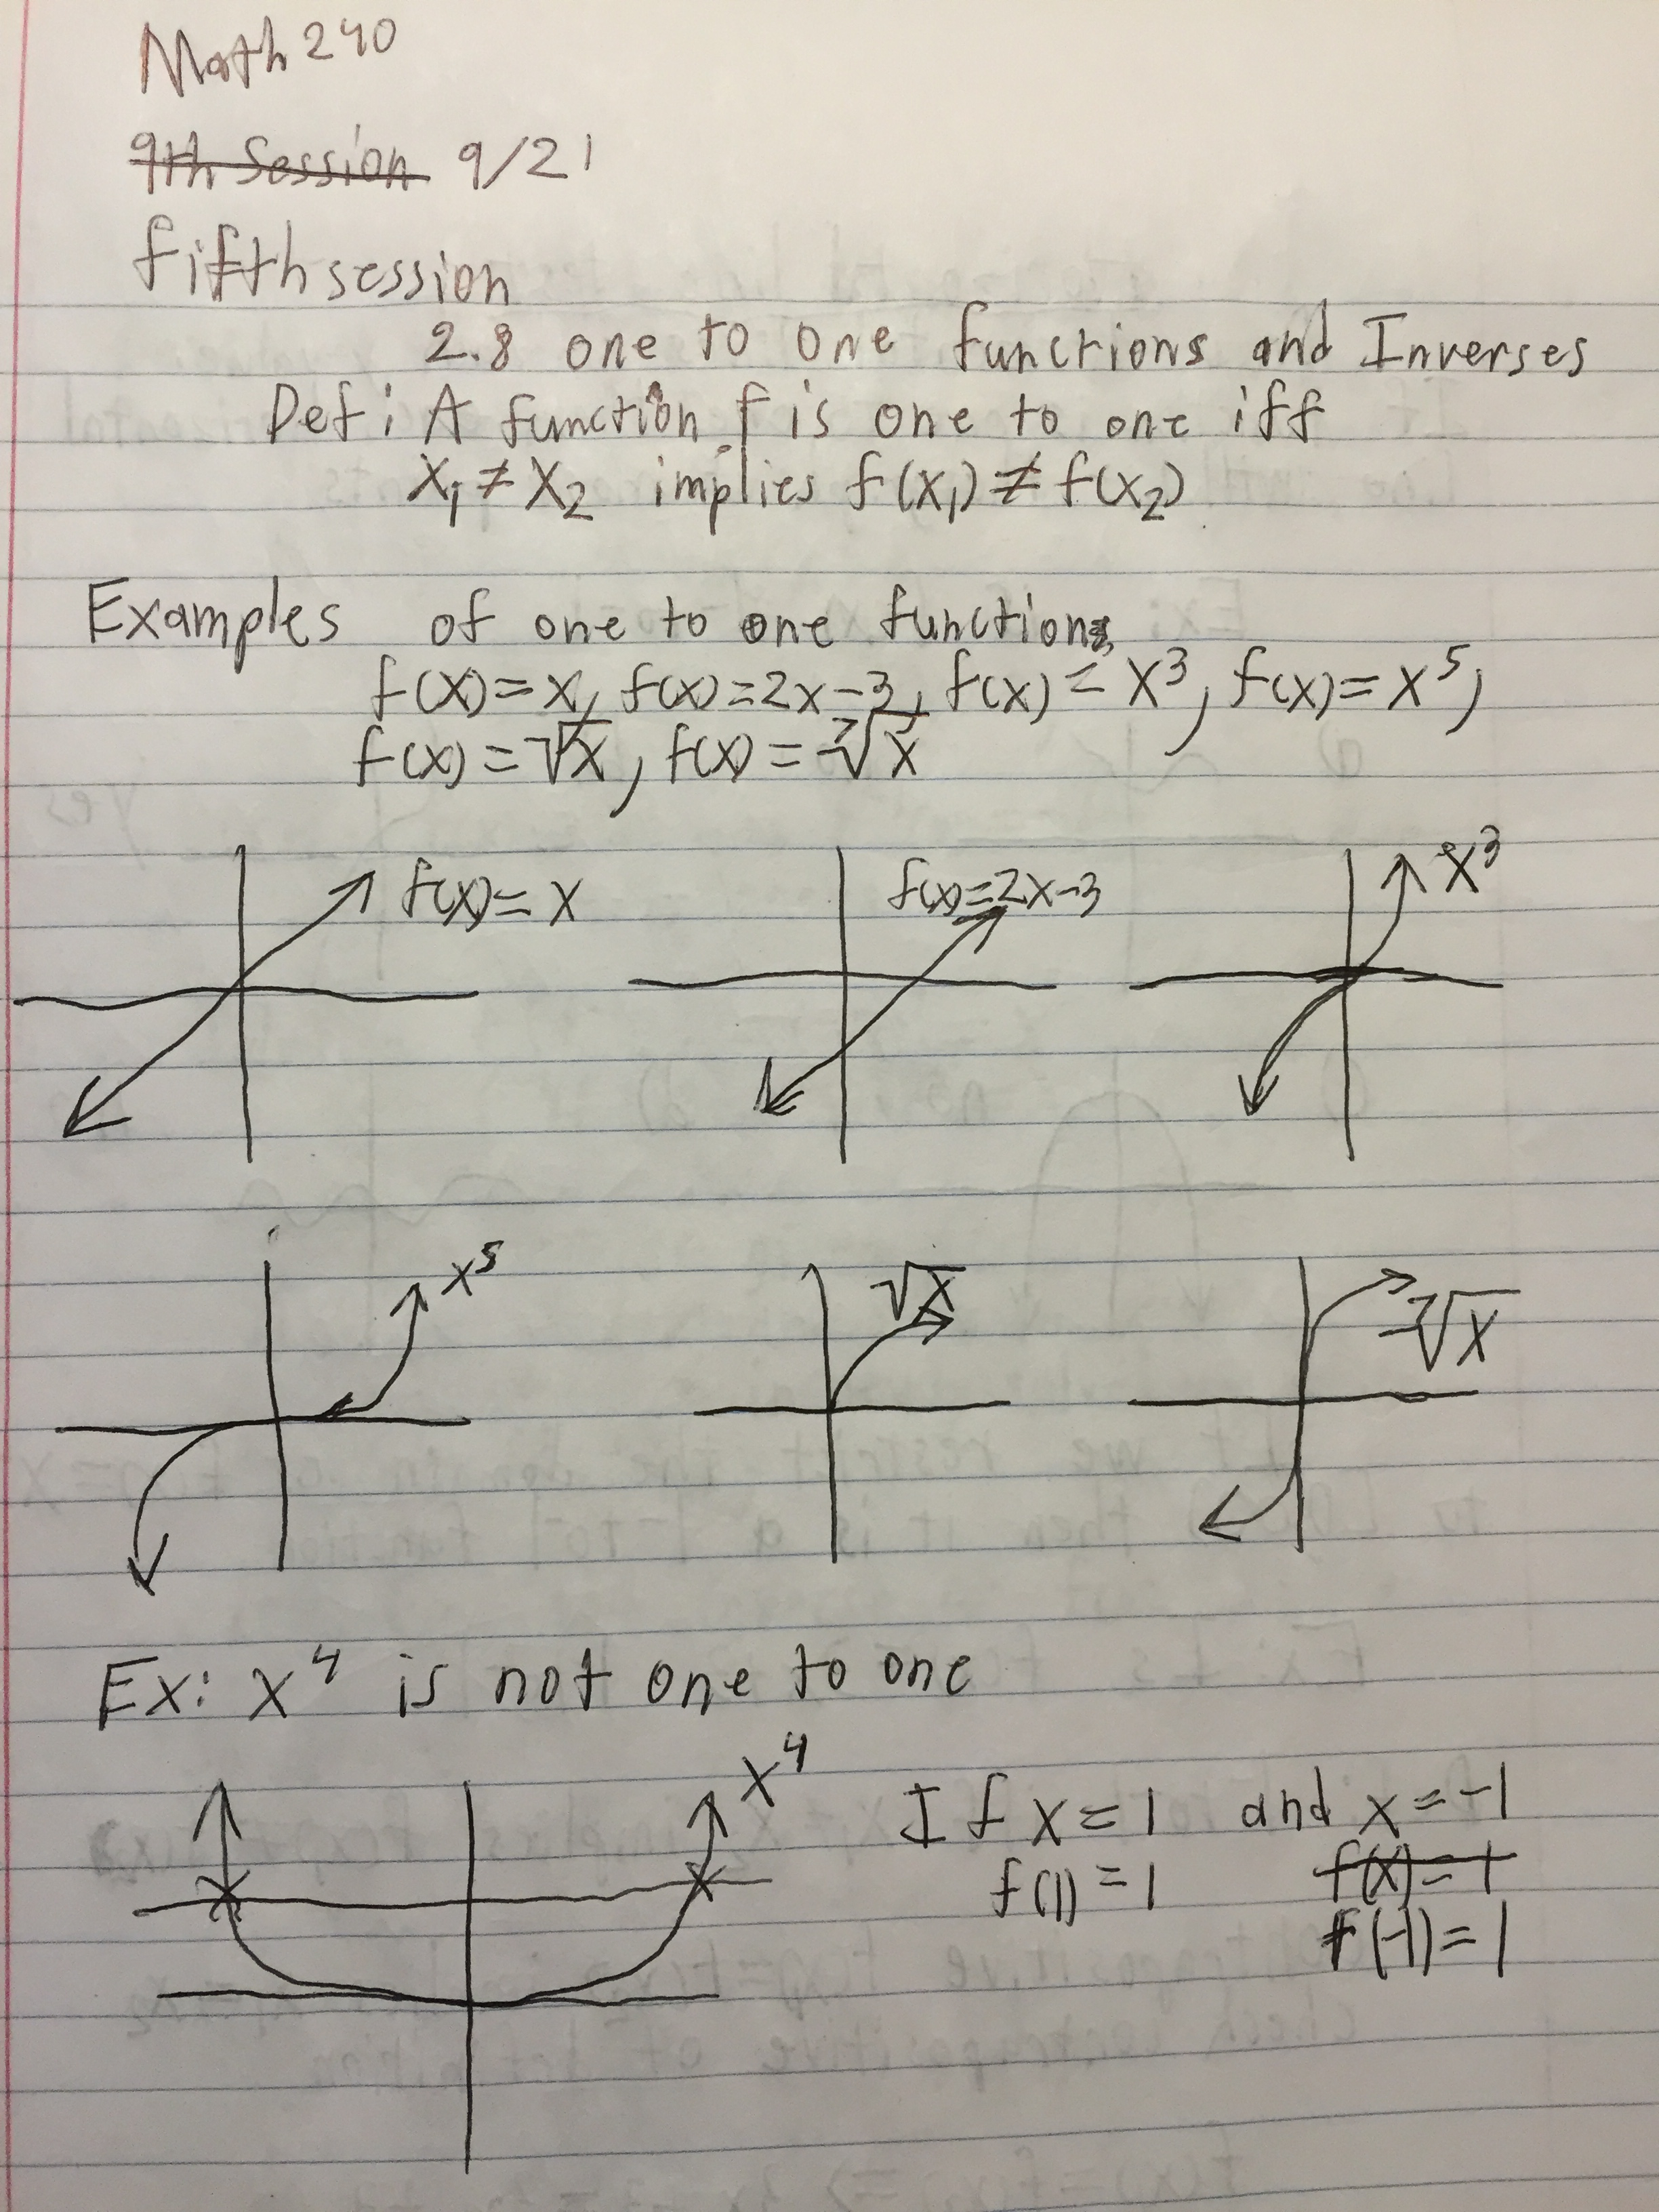 Math 240
9th Session 9/21
fifth session
2.8 one to one functions and Inverses
Def: A function f is one to one iff
x₁ ≠ x₂ implies f(x₁) ≠ f(x₂)
Examples of one to one functions
f(x)=x, f(x)=2x-3, f(x)=x³, f(x)=x⁵,
f(x)=√x, f(x)=⁷√x
f(x)=x f(x)=2x-3 x³
x⁵ √x ⁷√x
Ex: x⁴ is not one to one
x⁴ If x=1 and x=-1
f(1)=1 f(x)=1
f(-1)=1